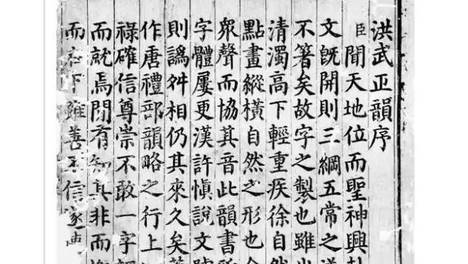 洪武正韻序
臣聞天地位而聖神興
文既開則三綱五常之道
不箸矣故字之製也雖出
清濁高下輕重疾徐自然
點畫縱橫自然之形也
衆聲而協其音此韻書所
字體屢更漢許慎說文號
則譌舛相仍其來久矣
作唐禮部韻略之行上
祿確信尊崇不敢一字
而就焉間有知其非而
而在下雖善不信